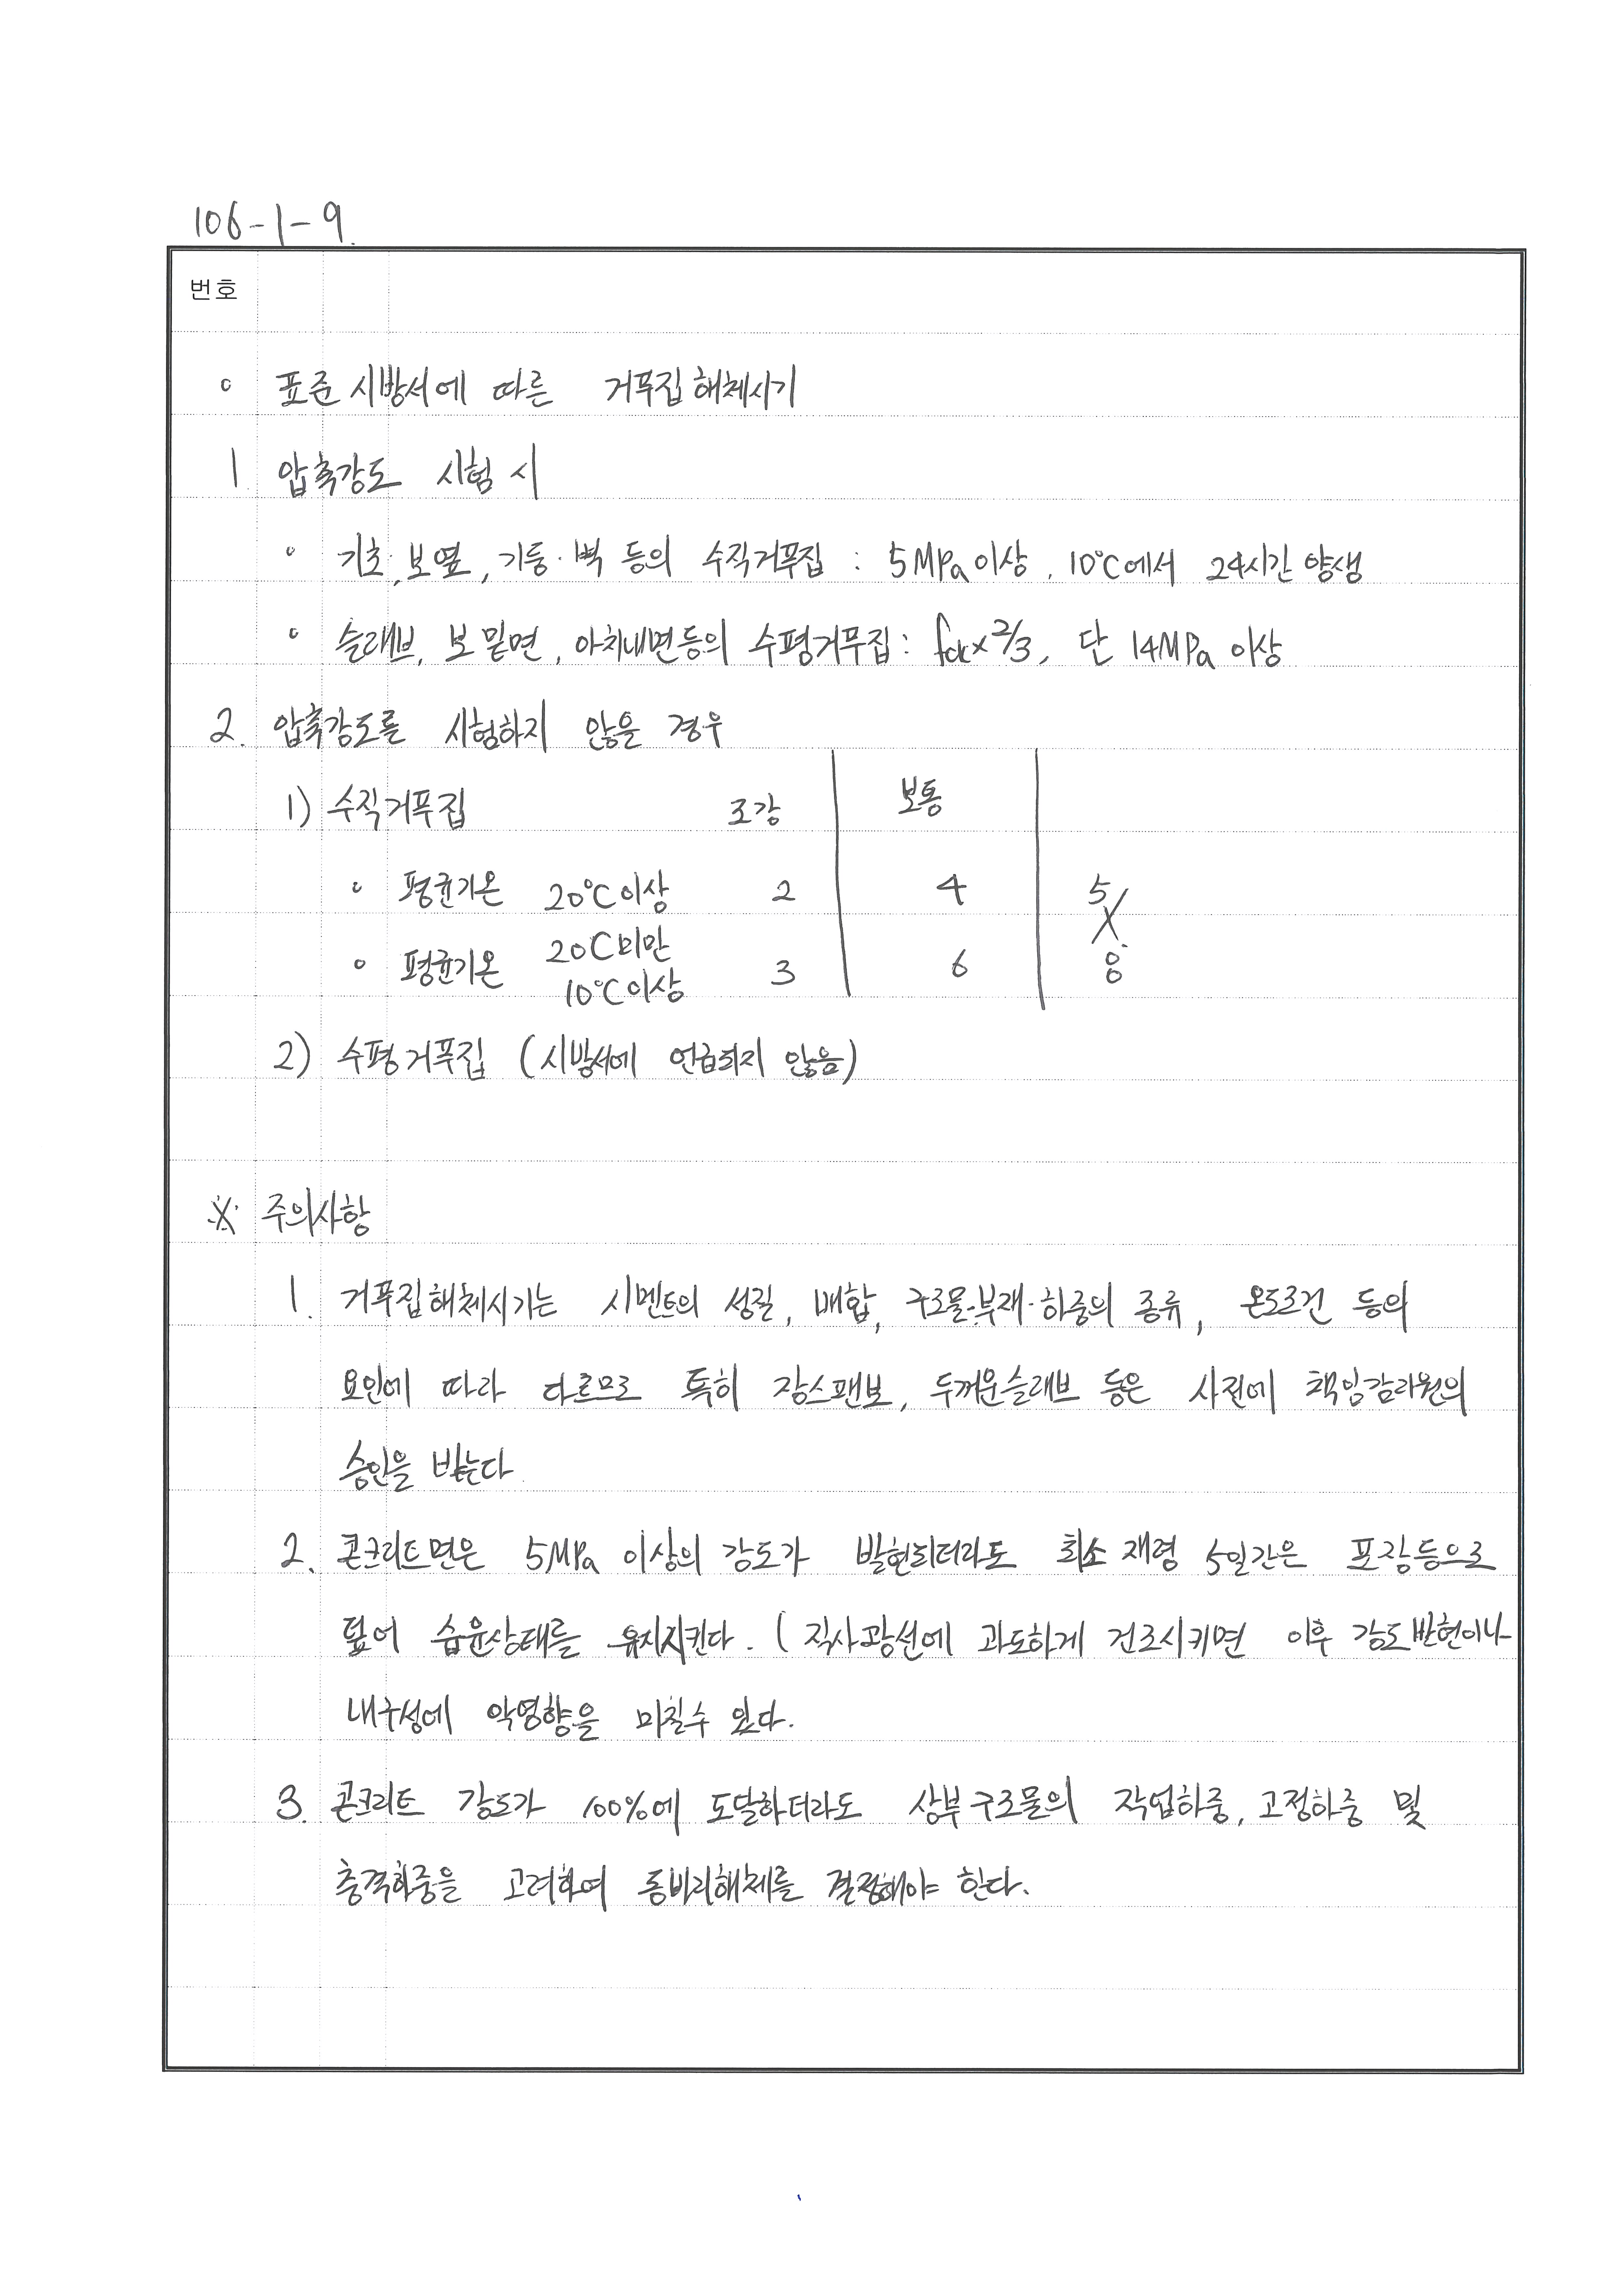 106-1-9.
번호
◦ 표준시방서에 따른 거푸집해체시기
1 압축강도 시험 시
◦ 기초, 보옆, 기둥·벽 등의 수직거푸집 : 5MPa이상, 10℃에서 24시간 양생
◦ 슬래브, 보 밑면, 아치내면등의 수평거푸집 : fck×2/3, 단 14MPa 이상
2. 압축강도를 시험하지 않을 경우
1) 수직거푸집 조강 보통
◦ 평균기온 20℃이상 2 4 5
◦ 평균기온 20℃미만 10℃이상 3 6 8
2) 수평거푸집 (시방서에 언급되지 않음)
※ 주의사항
1. 거푸집해체시기는 시멘트의 성질, 배합, 구조물·부재·하중의 종류, 온도조건 등의
요인에 따라 다르므로 특히 장스팬보, 두꺼운슬래브 등은 사전에 책임감리원의
승인을 받는다.
2. 콘크리트면은 5MPa 이상의 강도가 발현되더라도 최소 재령 5일간은 포장등으로
덮어 습윤상태를 유지시킨다. ( 직사광선에 과도하게 건조시키면 이후 강도발현이나
내구성에 악영향을 미칠수 있다.
3. 콘크리트 강도가 100%에 도달하더라도 상부구조물의 작업하중, 고정하중 및
충격하중을 고려하여 동바리해체를 결정해야 한다.